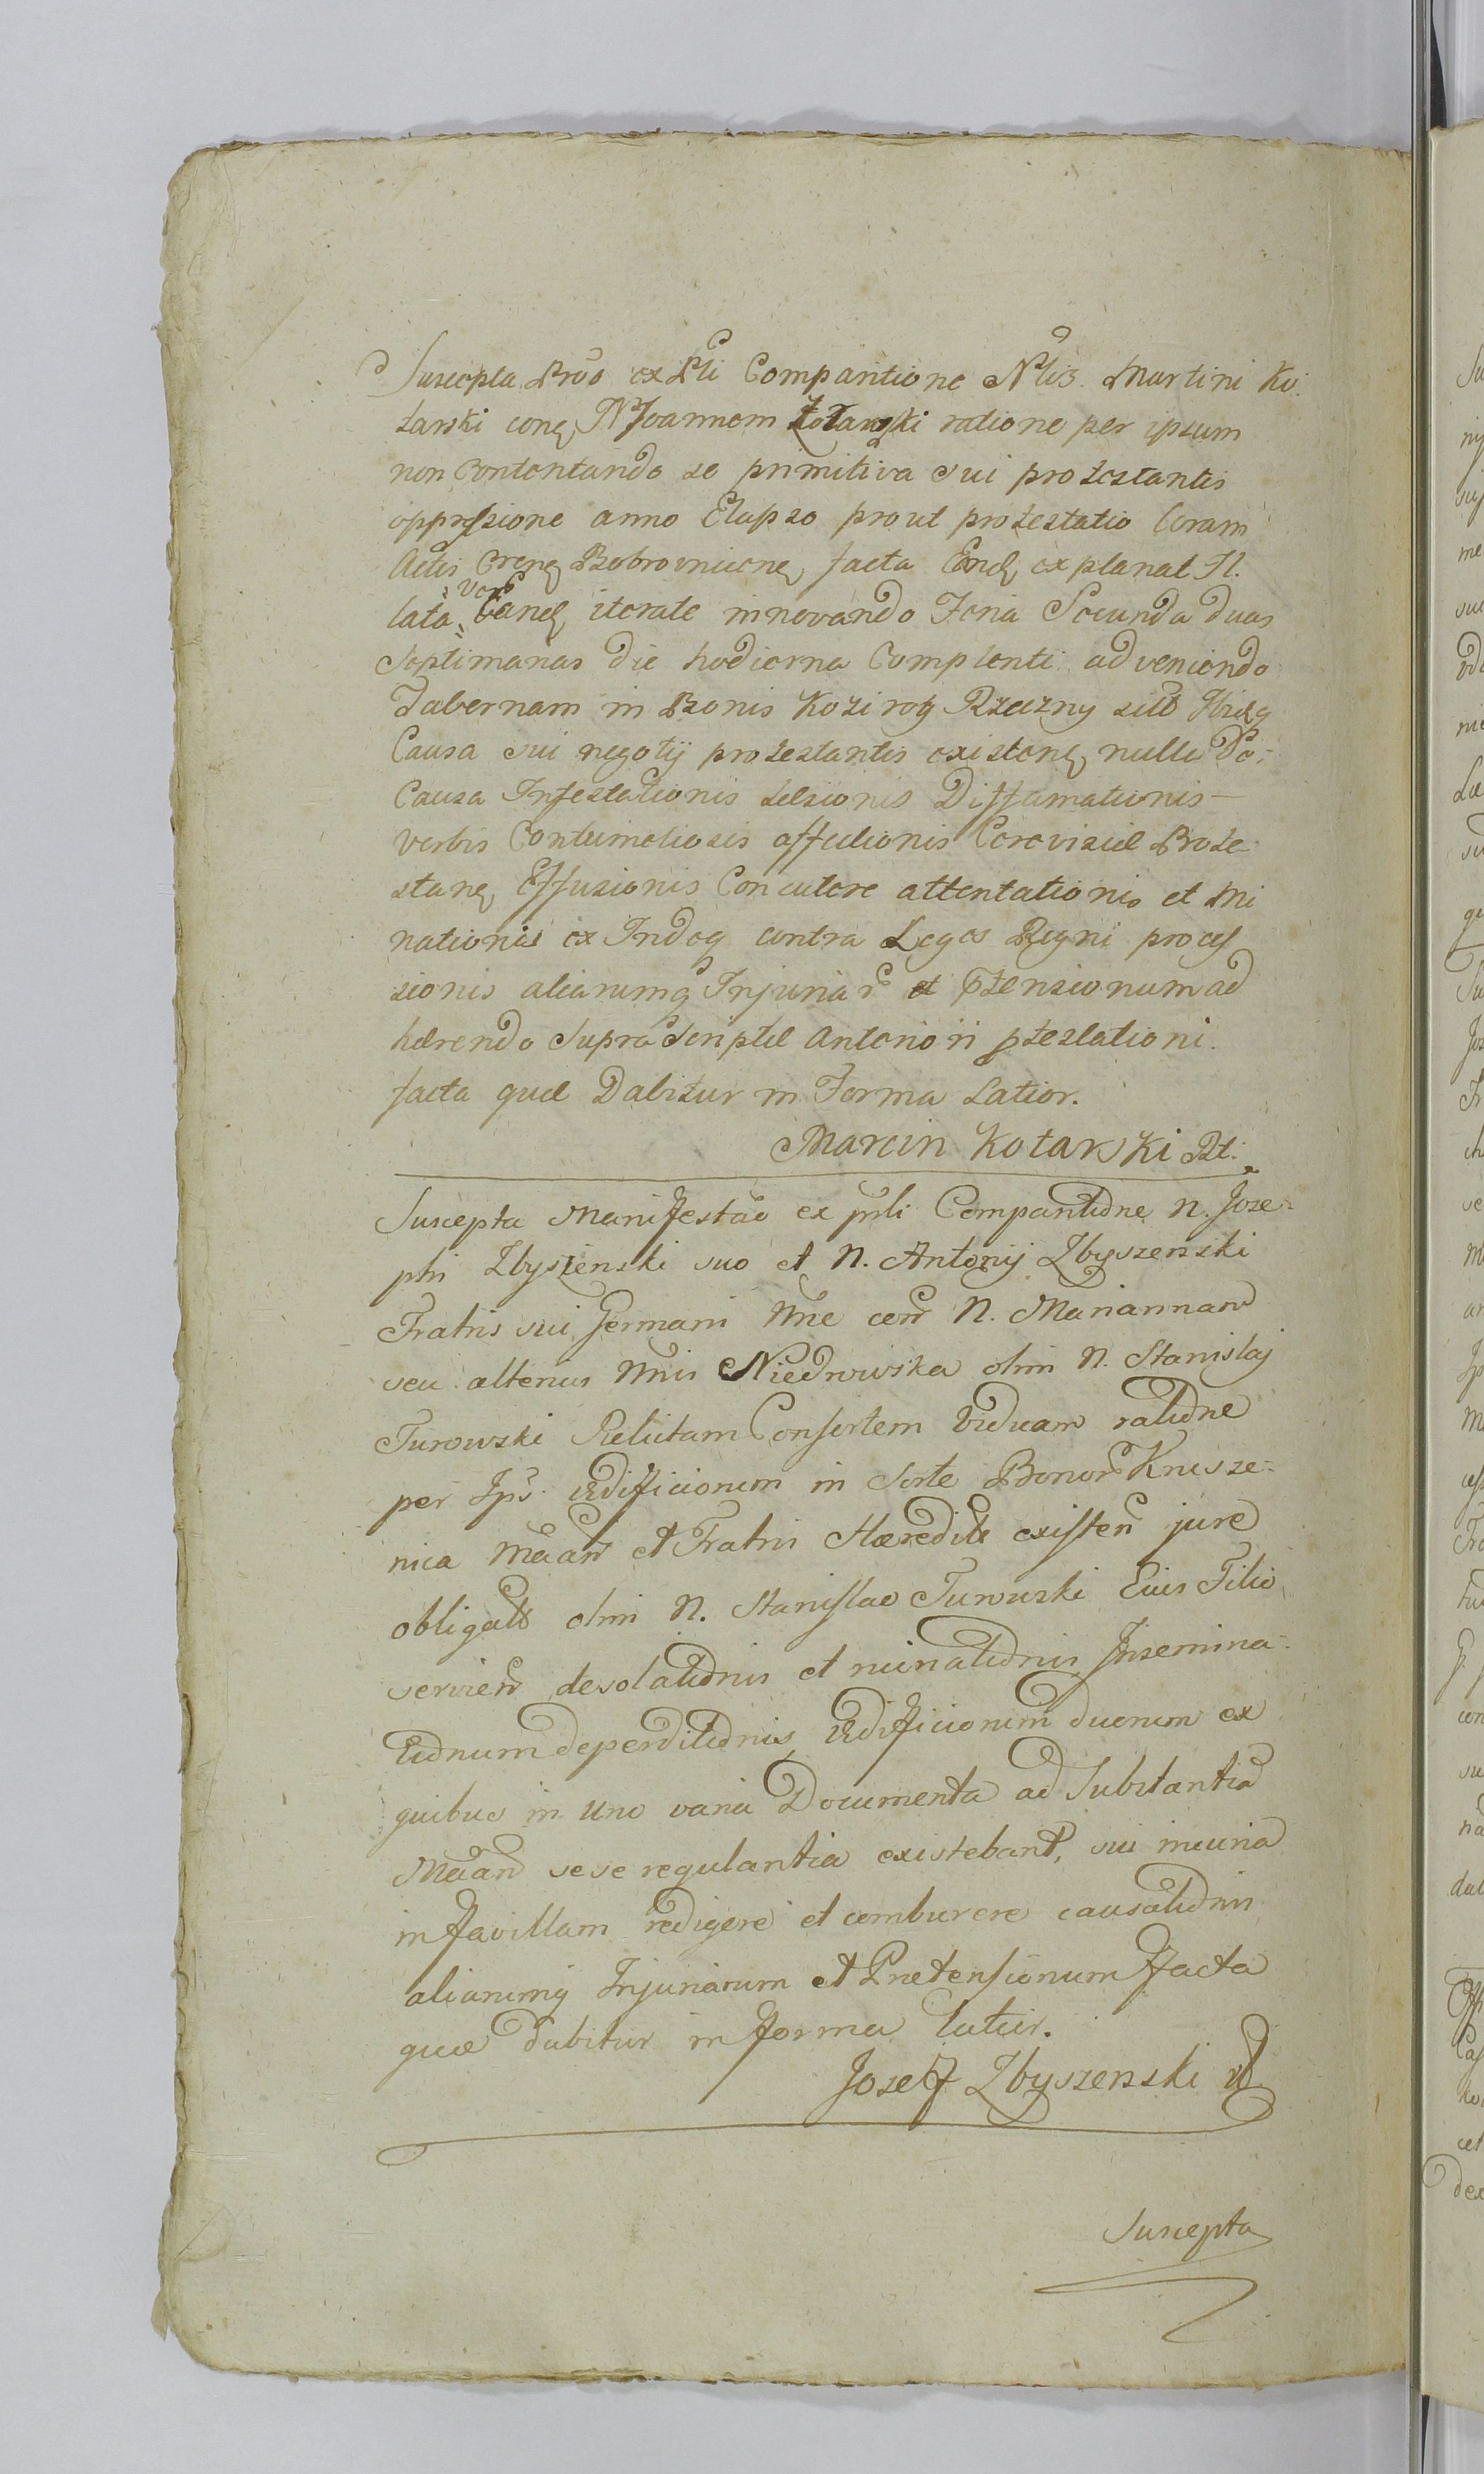 Suscepta Prõo ex Pti Comparitione Nlis Martini Ko:
tarski conq Joannem Kotarski ratione per ipsum
non Contentando se primitiva sui protestantis
oppressione anno Elapso prout protestatio Coram
Actis Bobrovnicenq facta explanat Il.
lata, iterate innovando Feria Secunda duas
Septimanas die hodierna Complenti adveniendo
Tabernam in Bonis Kozirog Rzeczny sitt
Causa sui negotij protestantis existenq nulla Da:
Causa Infestationis Lesionis Diffamationis
verbis Contumeliosis affectionis Cerevisiæ Prote-
stanq Effusionis Concutere attentationis et Mi
nationis ex Indeq contra Leges Regni proces
sionis aliarumq Injuriar et ptensionum ad
hærendo Supra Scriptæ Anteriori ptestationi.
facta quæ Dabitur in Forma Latior.
Marcin Kotarski
Suscepta Manifestao ex pnli Comparitione N. Jose-
phi Zbyszenski suo et N. Antonij Zbyszenski
Fratris sui Germani Nne con N. Mariannam
seu alterius Nnis Niedrowska olim N. Stanislaj
Turowski Relictam Consortem Viduam ratione
per Ips Ædificiorum in Sorte Bonor Knisze-
nica Mean et Fratris Hæredit existen jure
obligatt olim N. Stanislao Turowski Eius Filio
servien desolationis et ruinationis Insemina-
tionum deperditionis Ædificiorum duorum ex
quibus in uno varia Documenta ad Substantia
Mean sese regulantia existebant, sui incuria
in favillam redigere et comburere causationis
aliarumq Injuriarum et Pretensionum facta
quæ dabitur in forma latior.
Josef Zbyszenski
Suscepta